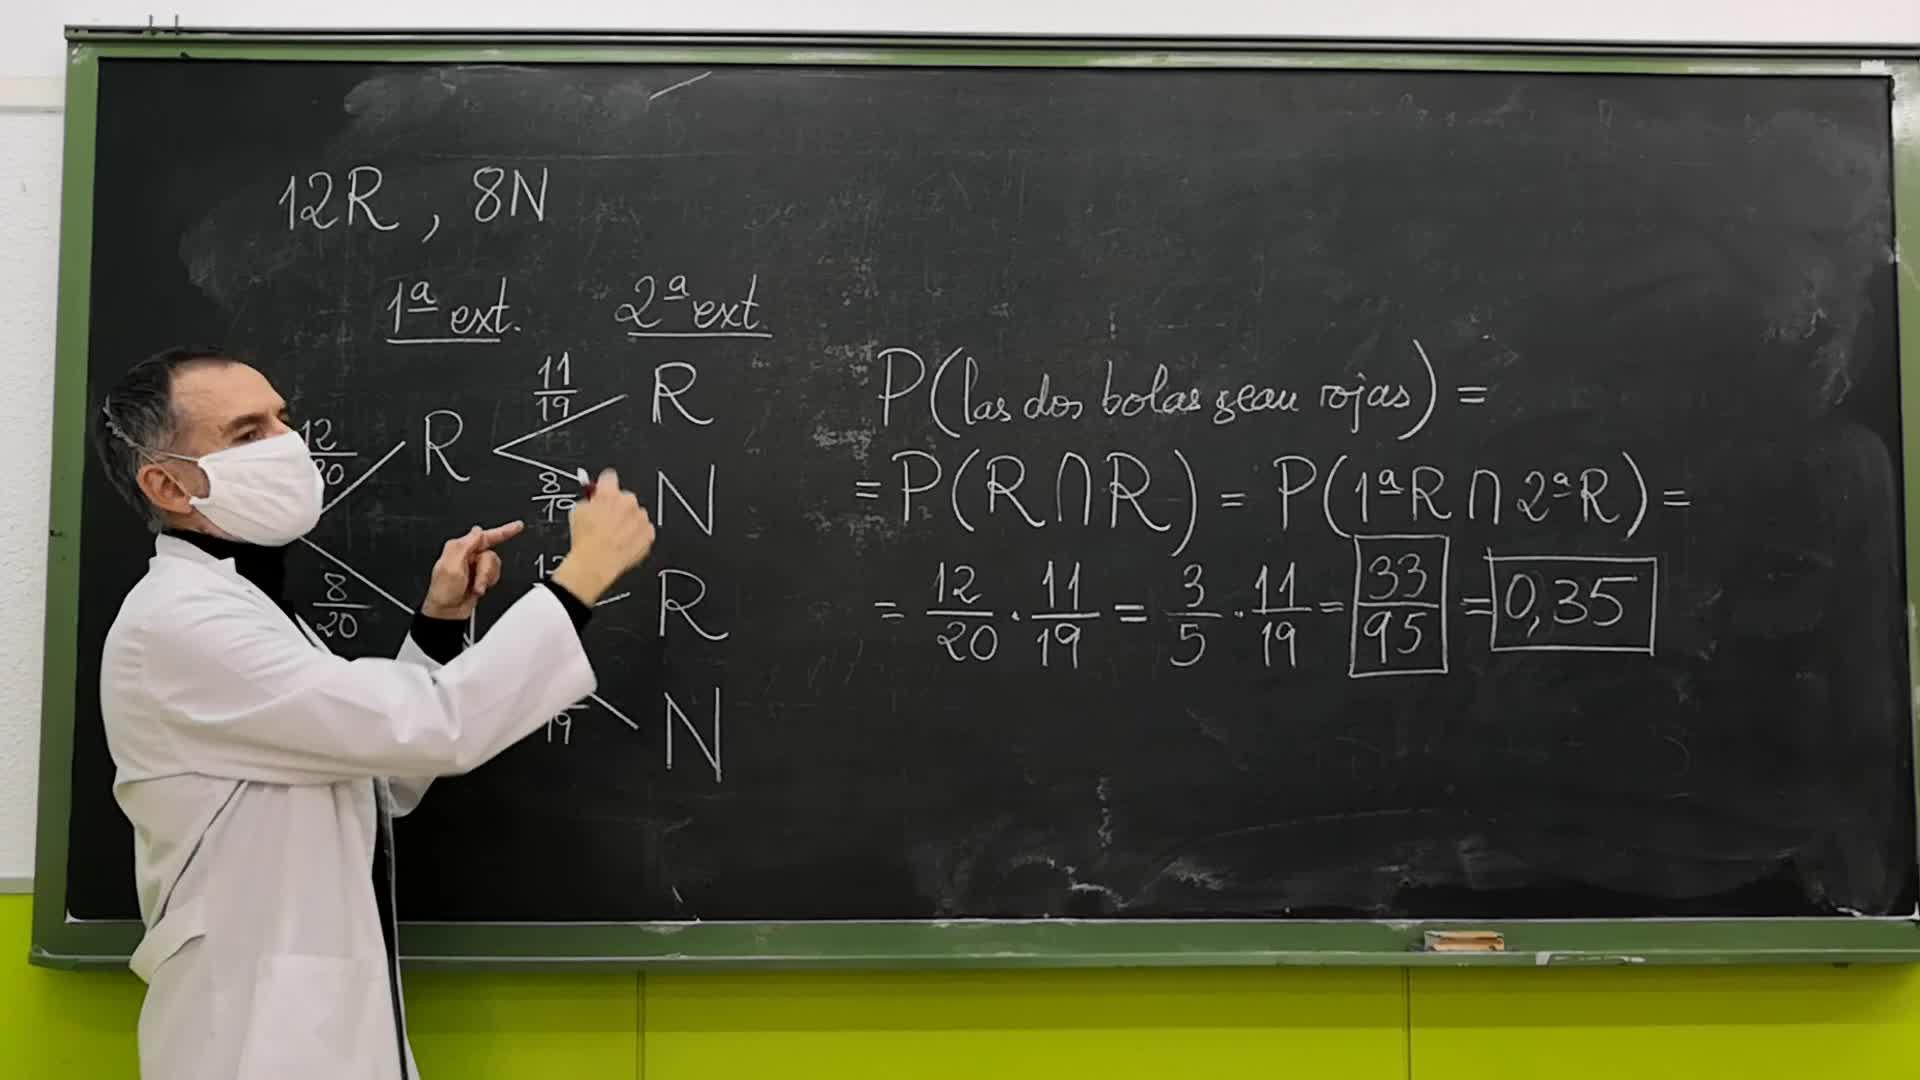 12R, 8N
1ª ext. 2ª ext.
11/19 R
12/20 R
8/19 N
8/20
12 R
19 N
P(las dos bolas sean rojas) =
= P(R∩R) = P(1ªR∩2ªR) =
= 12/20 · 11/19 = 3/5 · 11/19 = 33/95 = 0,35